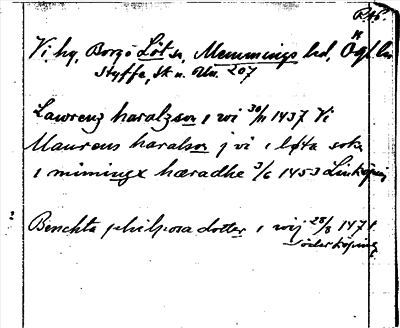 RAp.
Vi, hg, Borgö Löt sn, Memmings hd, Ögl. län
Styffe, Sk. u. Un. 207
Lawrenz haralzson i wi 30/11 1437 Vi
Maurens haralson j vi j løta sokn
i mimingx hæradhe 3/6 1453 Linköping
Benchta philiposa dotter i wij 28/8 1471
Söderköping